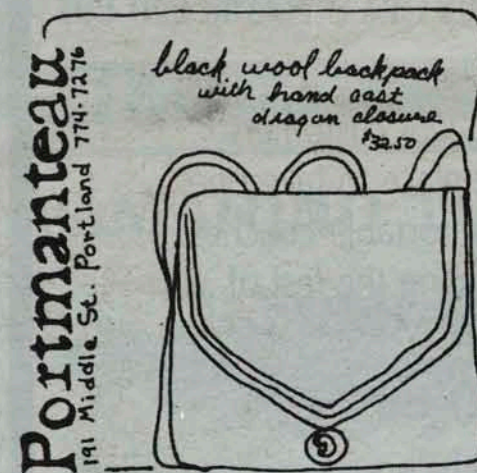 Portmanteau
191 Middle St. Portland 774-7276
black wool backpack
with hand cast
dragon closure
$3250